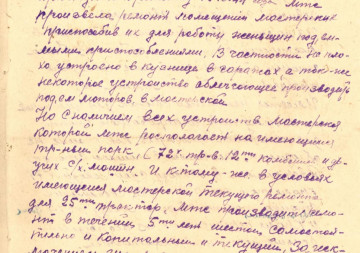 МТС
произвела ремонт помещений мастерских
приспособив их для работы женщин подъем-
ными приспособлениями, В частности не пло-
хо устроено в кузнице в гаражах а так-же
некоторое устройство облегчающее производить
под'ем моторов, в мастерской
Но с наличием всех устройств мастерская
которой МТС располагает на имеющийся
тр-ный парк (72х тр-в 12ти комбайнов и др
угих с/х. машин. И к тому-же в условиях
имеющейся мастерской текущего ремонта
для 25ти трактор МТС производит ремо-
нт в течении 5ти лет шестой Самостоя-
тельно и Капитальный и текущий, За